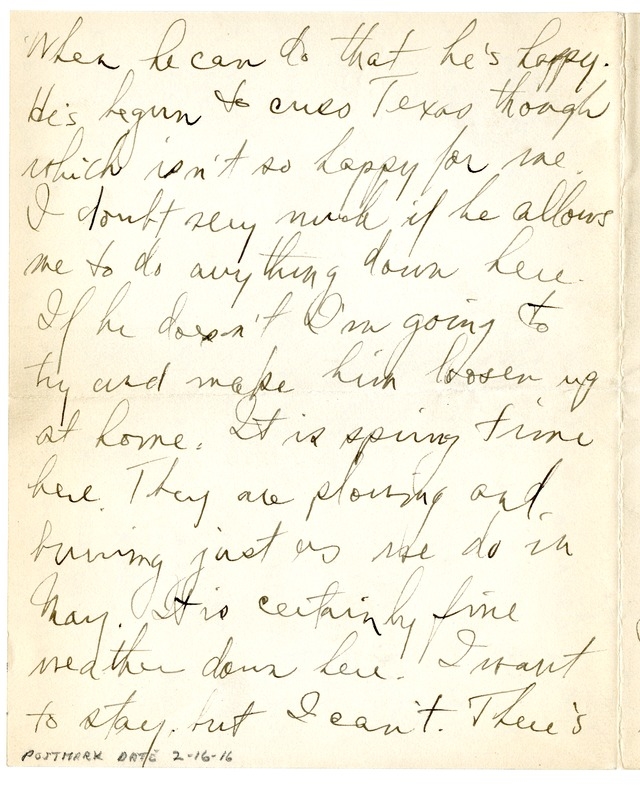 When he can do that he's happy.
He's begun to cuss Texas though
which isn't so happy for me.
I doubt very much if he allows
me to do anything down here.
If he doesn't I'm going to
try and make him loosen up
at home. It is spring time
here. They are plowing and
burning just as we do in
May. It is certainly fine
weather down here. I want
to stay but I can't. There's
POSTMARK DATE 2-16-16